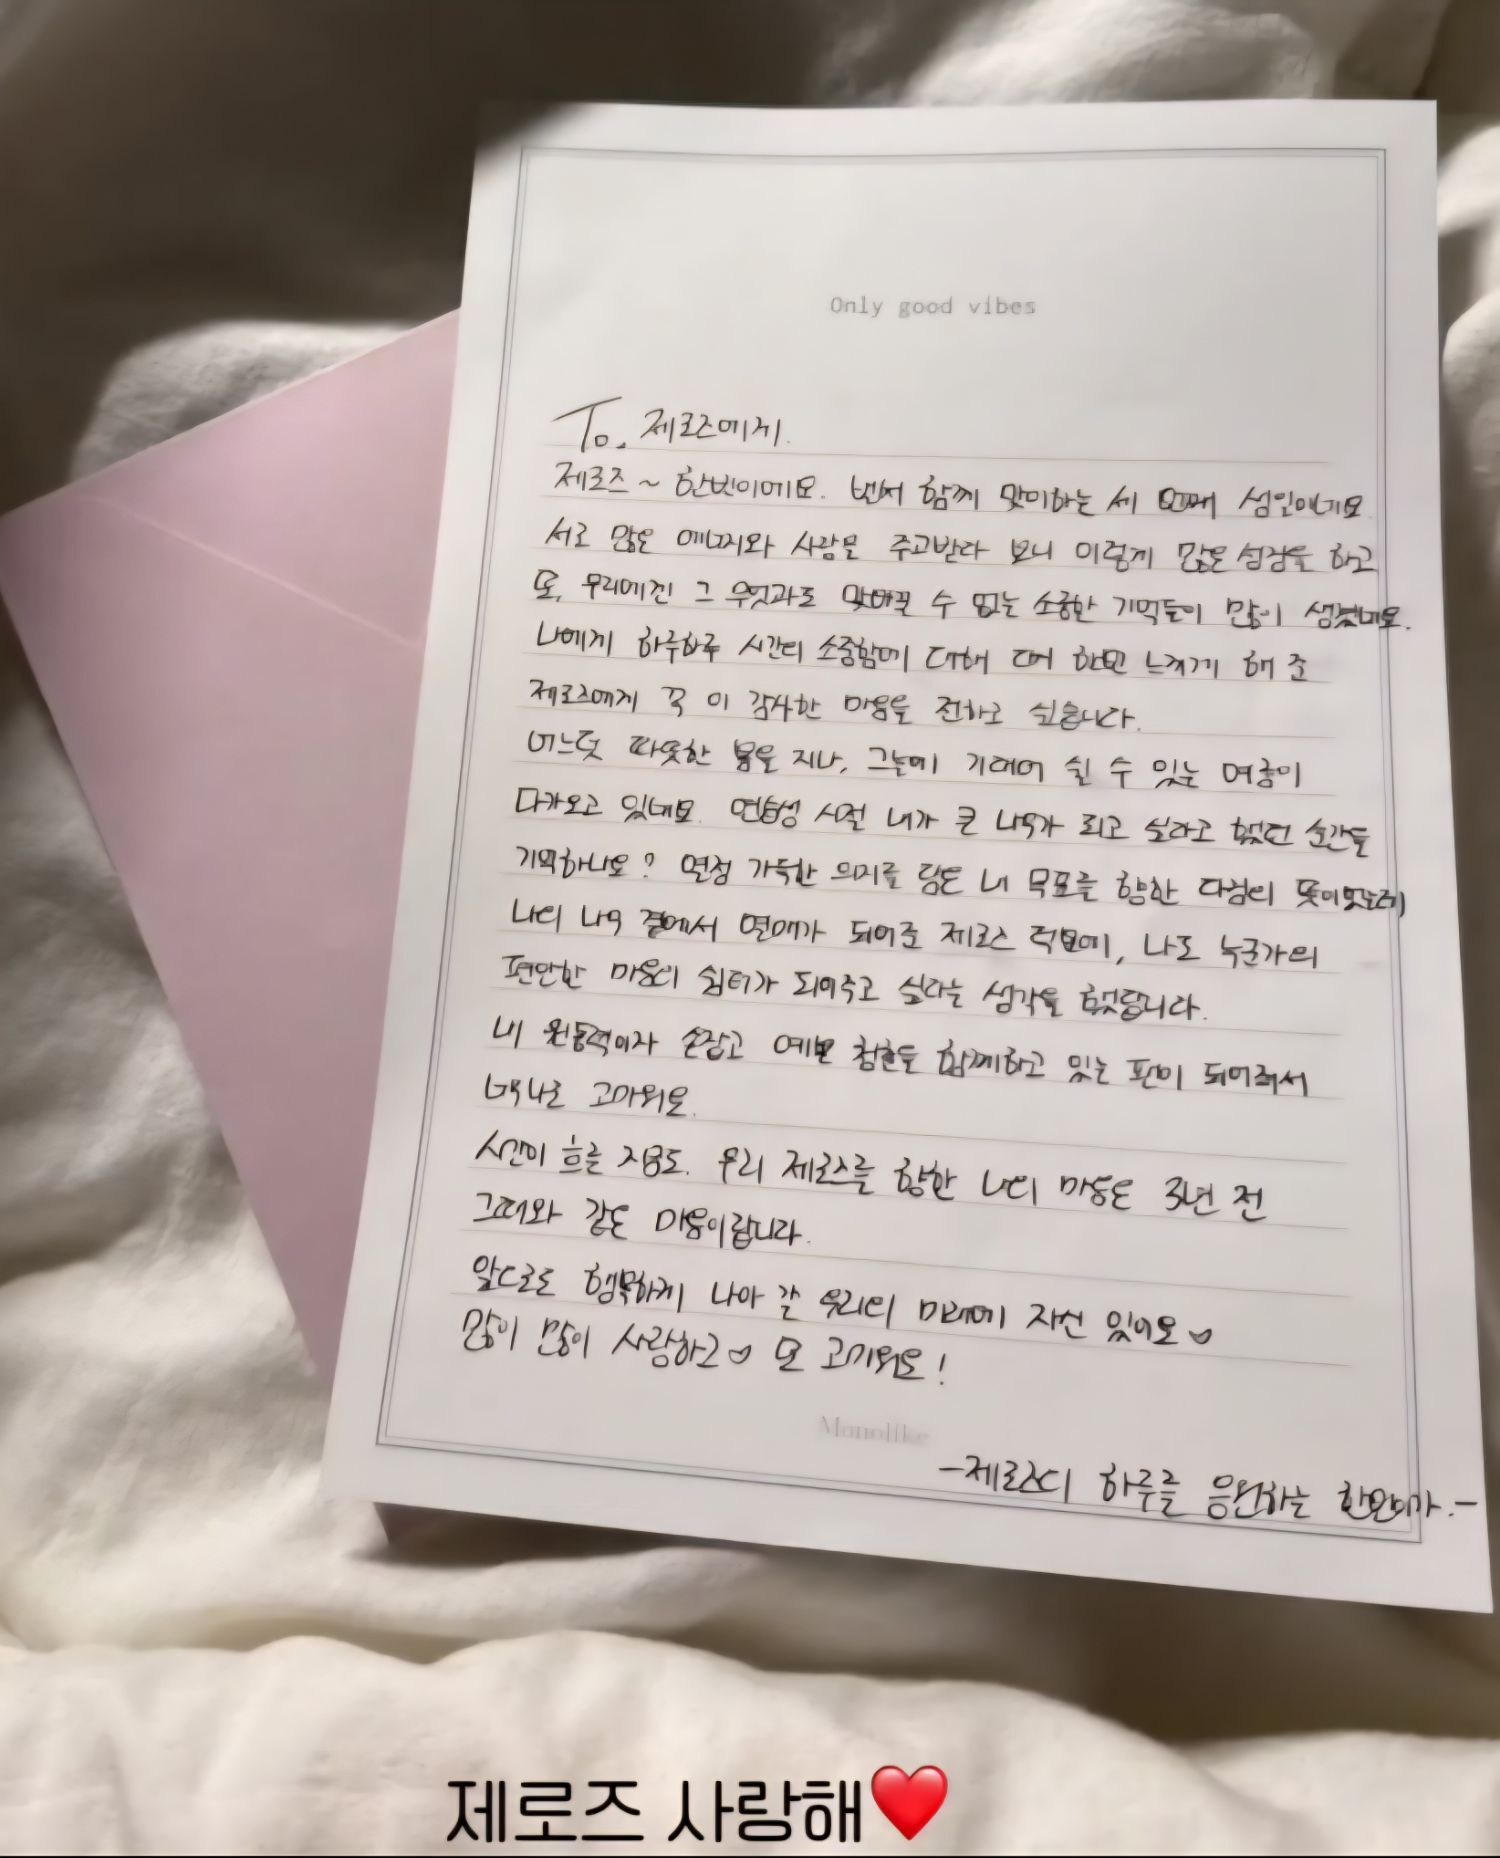 Only good vibes
To. 제로즈에게.
제로즈~ 한빈이에요. 벌써 함께 맞이하는 세 번째 생일이네요
서로 많은 에너지와 사랑을 주고받다 보니 이렇게 많은 성장을 하고
또, 우리에겐 그 무엇과도 맞바꿀 수 없는 소중한 기억들이 많이 생겼네요.
나에게 하루하루 시간의 소중함에 대해 더 한번 느끼게 해 준
제로즈에게 꼭 이 감사한 마음을 전하고 싶습니다.
어느덧 따뜻한 봄을 지나, 그늘에 기대어 쉴 수 있는 여름이
다가오고 있네요. 연습생 시절 내가 큰 나무가 되고 싶다고 했던 순간을
기억하나요? 열정 가득한 의지를 담은 내 목표를 향한 다짐의 뜻이었는데
나의 나무 곁에서 열매가 되어준 제로즈 덕분에, 나도 누군가의
편안한 마음의 쉼터가 되어주고 싶다는 생각을 했답니다.
내 원동력이자 손잡고 예쁜 청춘을 함께하고 있는 편이 되어줘서
너무나도 고마워요.
시간이 흐른 지금도. 우리 제로즈를 향한 나의 마음은 3년 전
그때와 같은 마음이랍니다.
앞으로도 행복하게 나아 갈 우리의 미래에 자신 있어요♡
많이 많이 사랑하고♡ 또 고마워요!
Monolike
-제로즈의 하루를 응원하는 한빈이가.-
제로즈 사랑해❤️